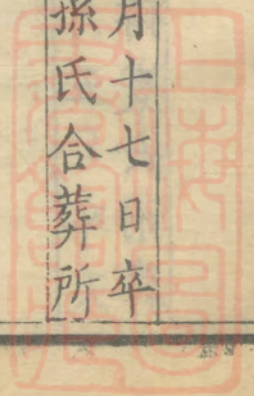 月十七日卒
孫氏合葬所